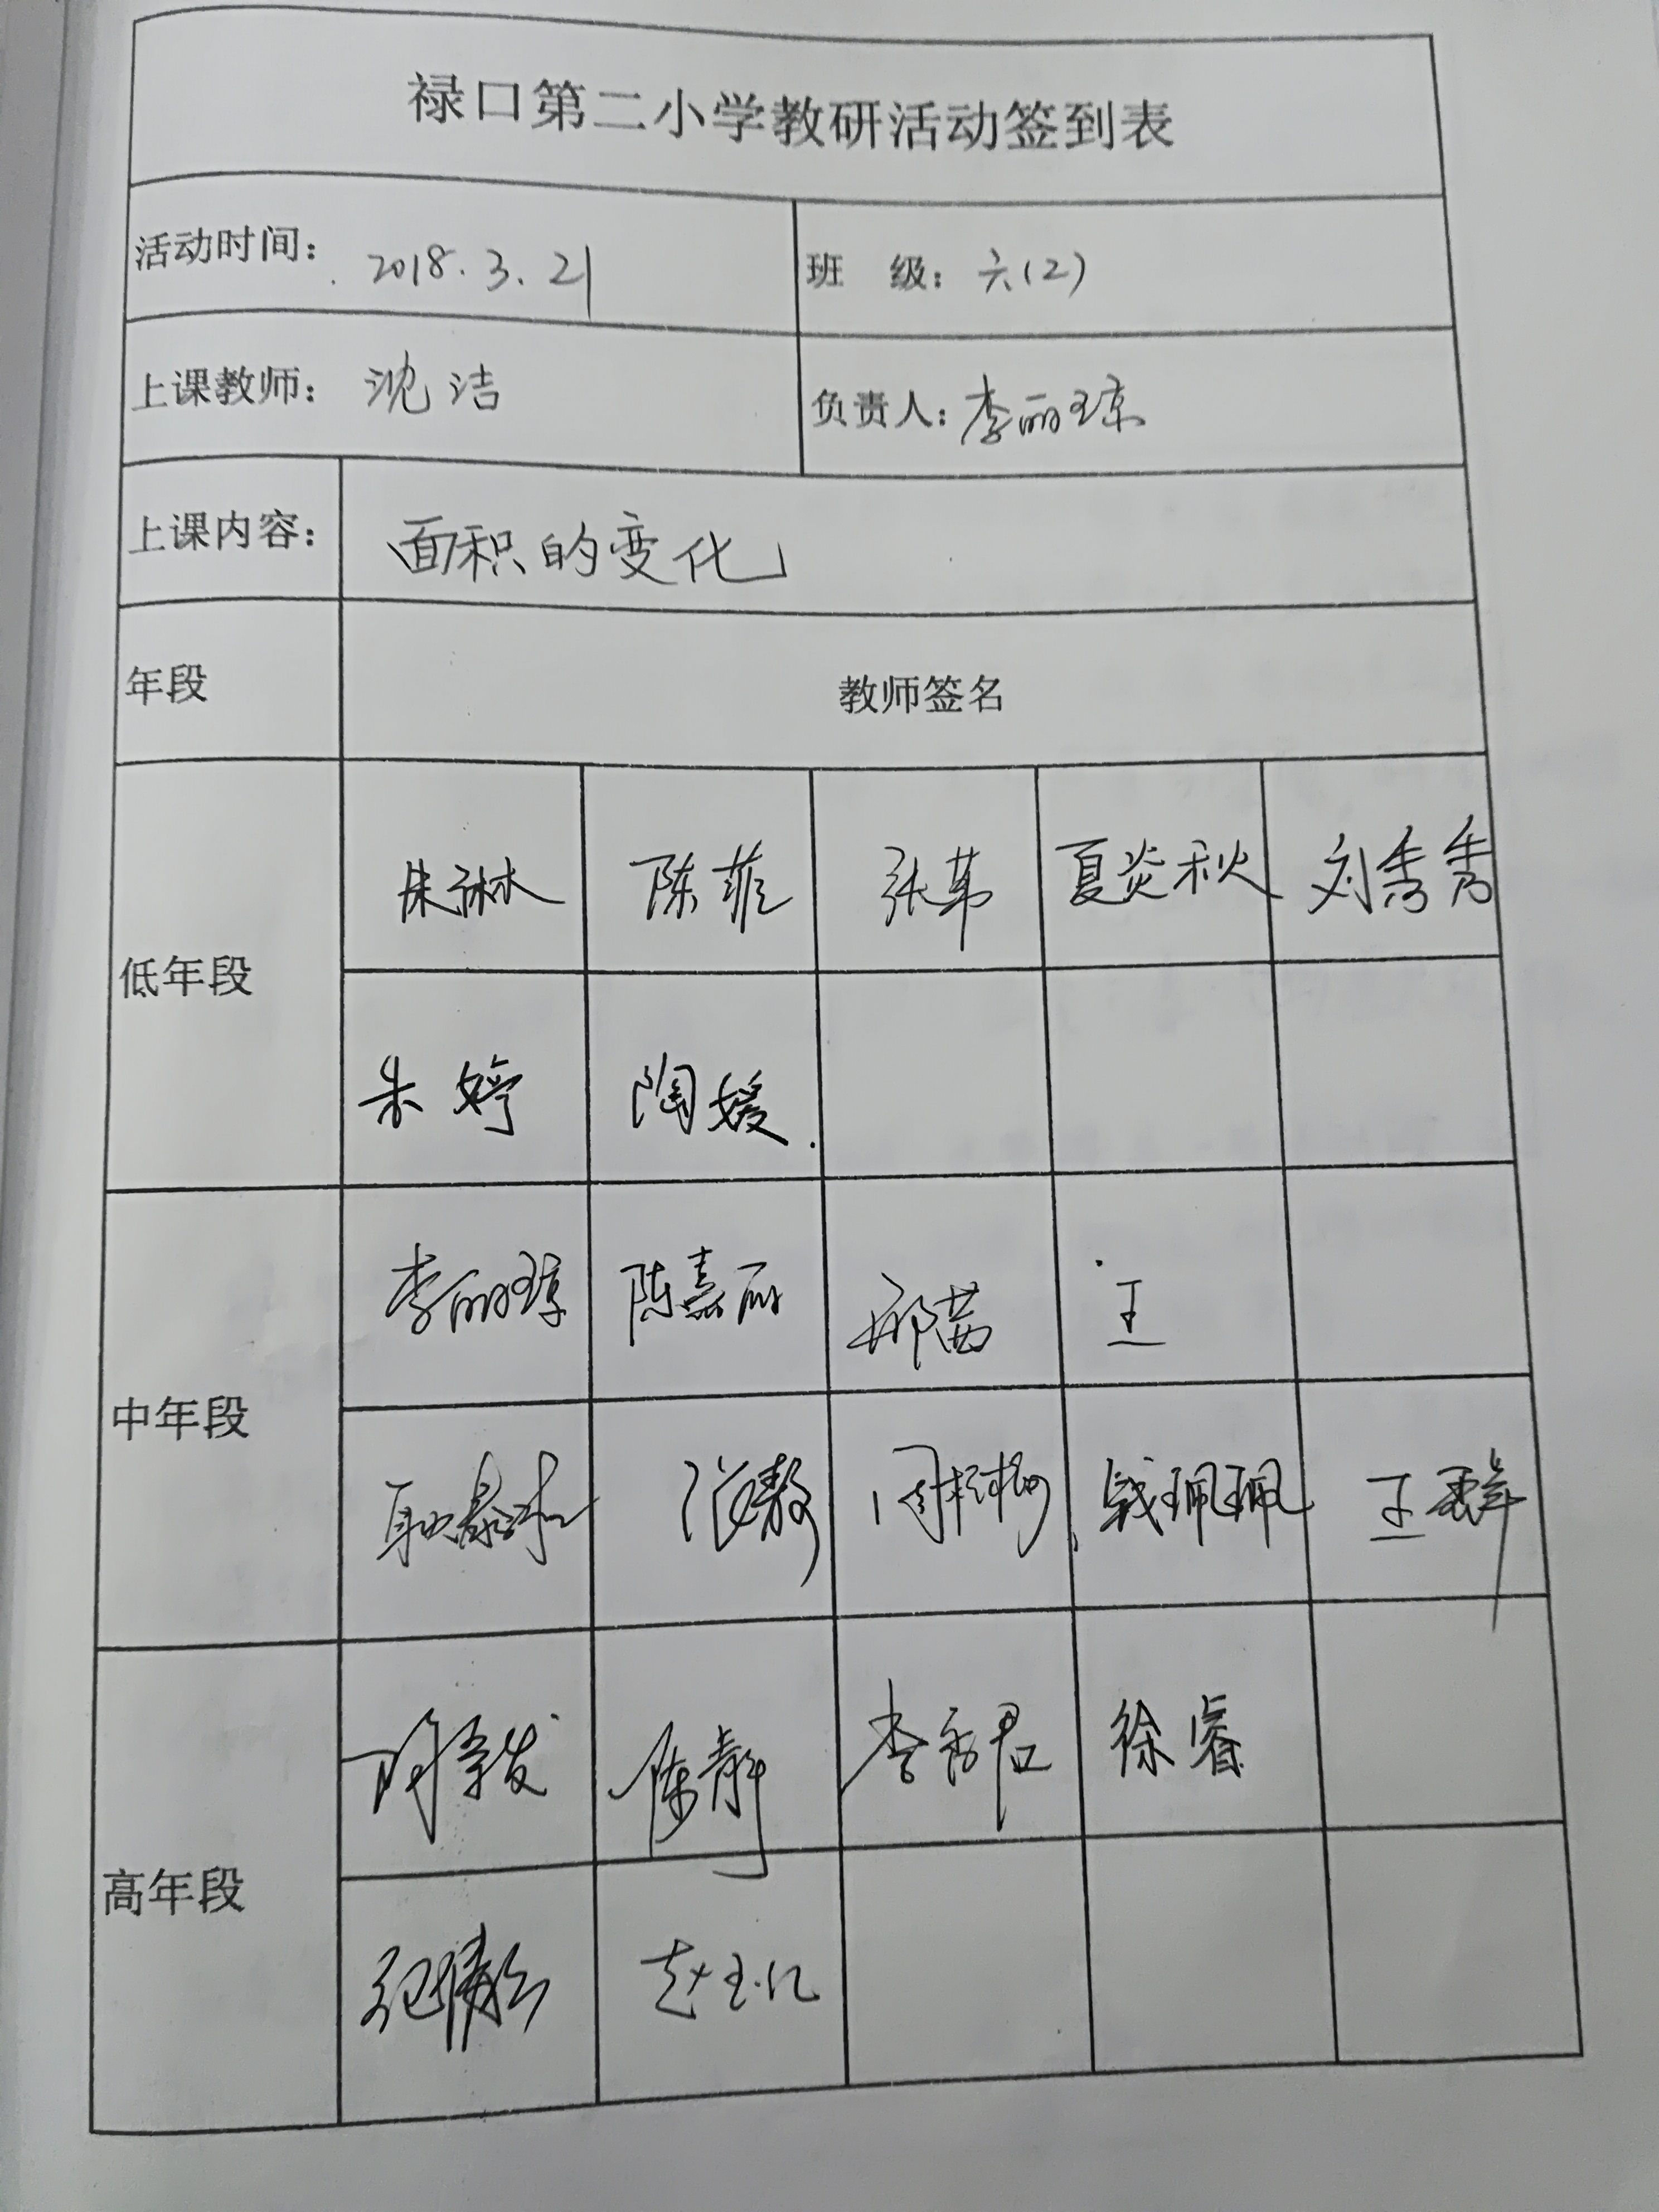 禄口第二小学教研活动签到表
活动时间: 2018.3.21 班 级: 六(2)
上课教师: 沈洁 负责人: 李丽琼
上课内容: 《面积的变化》
年段 教师签名
低年段
朱琳 陈菲 张苇 夏炎秋 刘秀秀
朱婷 陶媛.
中年段
李丽琼 陈嘉丽 邢茜 王
钱珮珮 王
高年段
陈静 李秀君 徐睿
赵玉仁